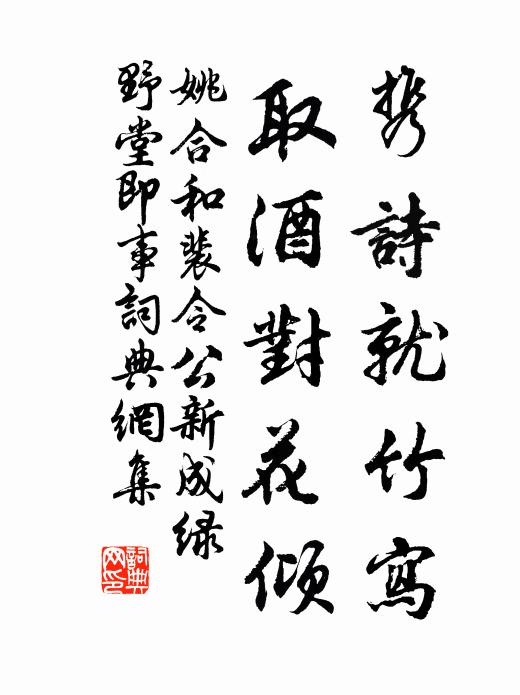 携詩就竹寫
取酒對花傾
姚合和裴令公新成绿
野堂即事詞典網集
詞典
网印